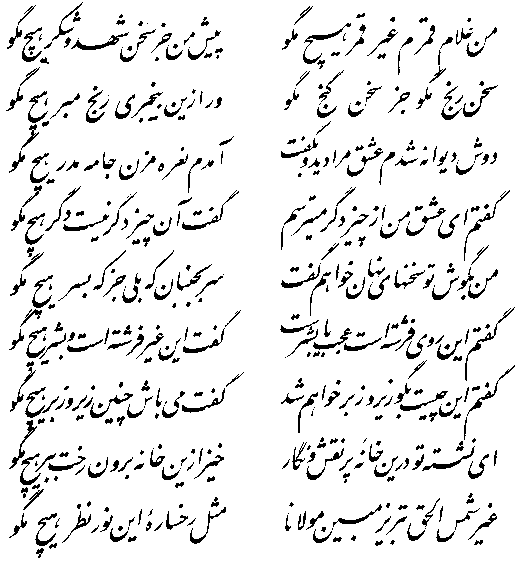 من غلام قمرم غیر قمر هیچ مگو پیش من جز سخن شهد و شکر هیچ مگو
سخن رنج مگو جز سخن گنج مگو ور ازین بیخبری رنج مبر هیچ مگو
دوش دیوانه شدم عشق مرا دید و بگفت آمدم نعره مزن جامه مدر هیچ مگو
گفتم ای عشق من از چیز دگر میترسم گفت آن چیز دگر نیست دگر هیچ مگو
من بگوش تو سخنهای نهان خواهم گفت سر بجنبان که بلی جز که بسر هیچ مگو
گفتم این روی فرشته است عجب یا بشر است گفت این غیر فرشته است و بشر هیچ مگو
گفتم این چیست بگو زیر و زبر خواهم شد گفت می باش چنین زیر و زبر هیچ مگو
ای نشسته تو درین خانه پر نقش و نگار خیز ازین خانه برون رخت ببر هیچ مگو
غیر شمس الحق تبریز مبین مولانا مثل رخسارهٔ این نور نظر هیچ مگو